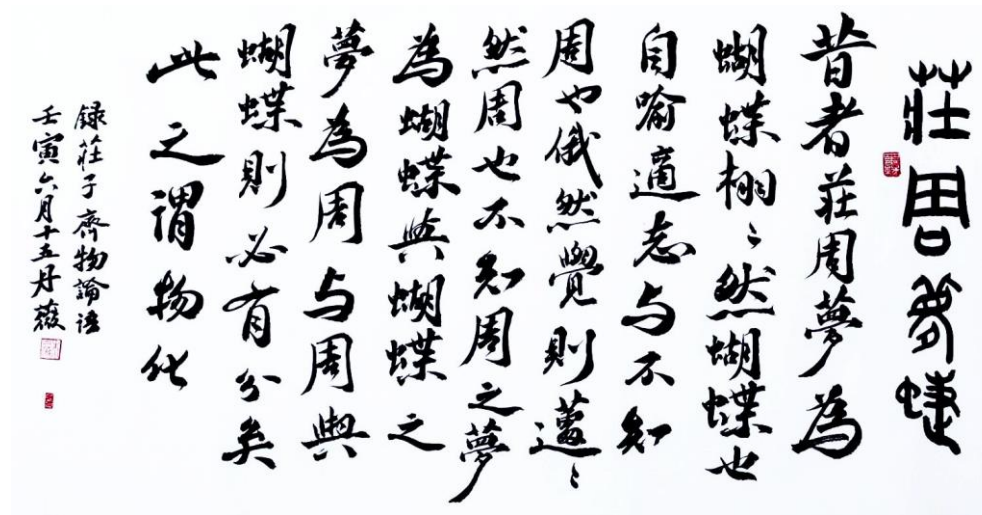 莊周夢蜨
昔者莊周夢為
蝴蝶栩〻然蝴蝶也
自喻適志与不知
周也俄然覺則蘧〻
然周也不知周之夢
為蝴蝶與蝴蝶之
夢為周与周與
蝴蝶則必有分矣
此之謂物化
録莊子齊物論語
壬寅六月十五丹薇